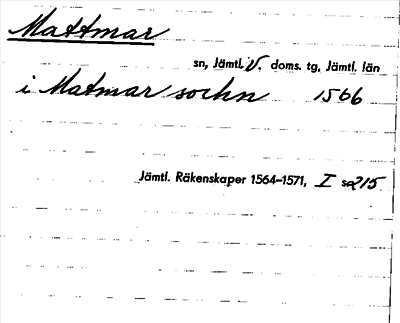 Mattmar
sn, Jämtl. V. doms. tg, Jämtl. län
i Matmar sochn 1566
Jämtl. Räkenskaper 1564–1571, I s. 215